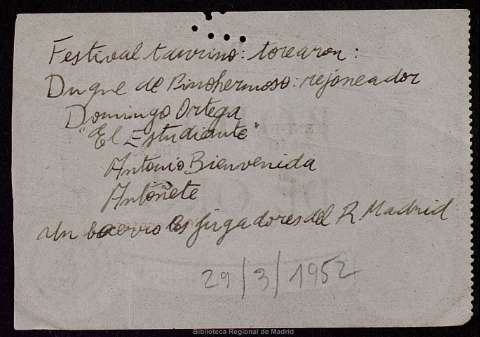 Festival taurino: torearon:
Duque de Pinohermoso: rejoneador
Domingo Ortega
"El Estudiante"
Antonio Bienvenida
Antoñete
un becerro los jugadores del R. Madrid
29/3/1952
Biblioteca Regional de Madrid